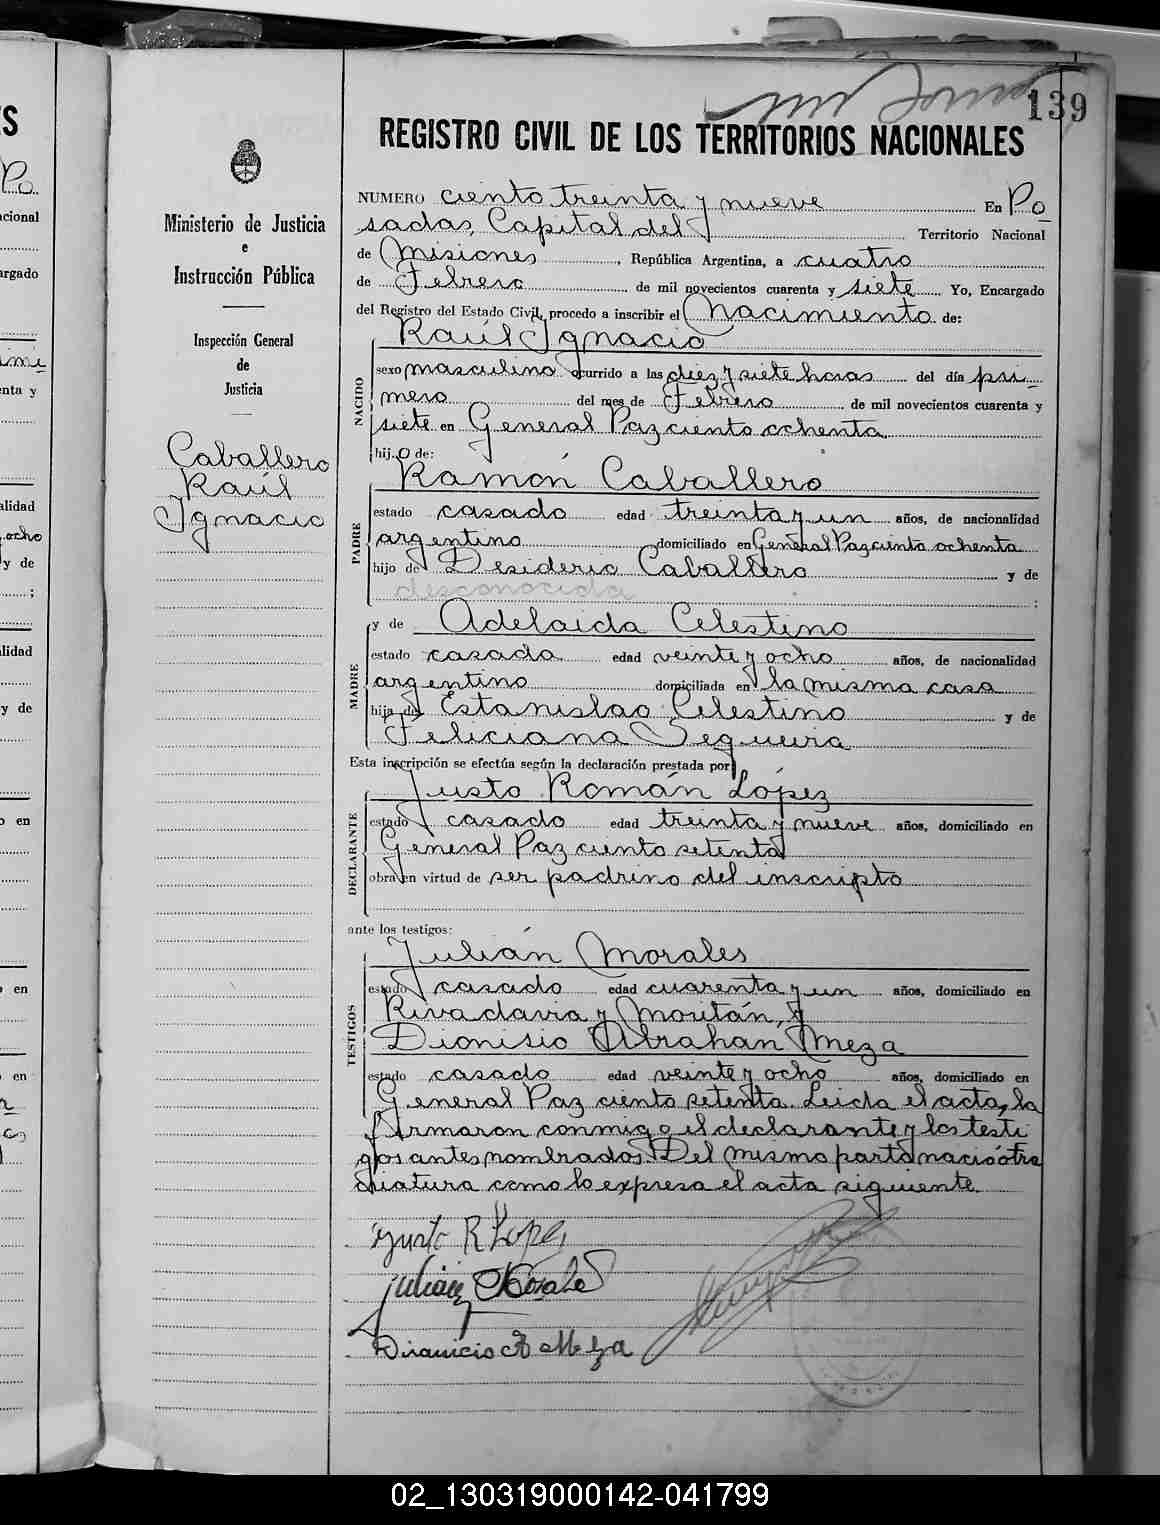 139
REGISTRO CIVIL DE LOS TERRITORIOS NACIONALES
NUMERO ciento treinta y nueve En Po
sadas, Capital del Territorio Nacional
de Misiones, República Argentina, a cuatro
de Febrero de mil novecientos cuarenta y siete Yo, Encargado
del Registro del Estado Civil, procedo a inscribir el Nacimiento de:
Raúl Ignacio
NACIDO
sexo masculino ocurrido a las diez y siete horas del día pri
mero del mes de Febrero de mil novecientos cuarenta y
siete en General Paz ciento ochenta
hijo de:
Ramón Caballero
PADRE
estado casado edad treinta y un años, de nacionalidad
argentino domiciliado en General Paz ciento ochenta
hijo de Desiderio Caballero y de
desconocida ;
y de Adelaida Celestino
MADRE
estado casada edad veinte y ocho años, de nacionalidad
argentino domiciliada en la misma casa
hija de Estanislao Celestino y de
Feliciana Sequeira
Esta inscripción se efectúa según la declaración prestada por
Justo Román López
DECLARANTE
estado casado edad treinta y nueve años, domiciliado en
General Paz ciento setenta
obra en virtud de ser padrino del inscripto
ante los testigos:
Julián Morales
TESTIGOS
estado casado edad cuarenta y un años, domiciliado en
Rivadavia y Moritán, y
Dionisio Abrahan Meza
estado casado edad veinte y ocho años, domiciliado en
General Paz ciento setenta. Leida el acta, la
firmaron conmigo el declarante y los testi
gos antes nombrados. Del mismo parto nació otra
criatura como lo expresa el acta siguiente.
Justo R Lopez
Julian Morales
A Meza
Ministerio de Justicia
e
Instrucción Pública
Inspección General
de
Justicia
Caballero
Raúl
Ignacio
02_130319000142-041799